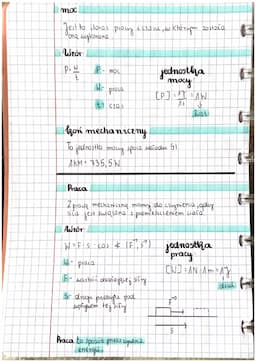 moc
Jest to iloraz pracy i czasu, w którym została
ona wykonana
Wzór
P = W/t
P - moc
W - praca
t - czas
jednostka
mocy
[P] = 1J/1s = 1W
wat
Koń mechaniczny
To jednostka mocy spoza układu SI
1KM = 735,5W
Praca
Z pracą mechaniczną mamy do czynienia, gdy
siła jest związana z przemieszczeniem ciała
Wzór
W = F · s · cos ∢ (F, s)
jednostka
pracy
W - praca
[W] = 1N · 1m = 1J
dżul
F - wartość działającej siły
S - droga przebyta pod
wpływem tej siły
F
S
Praca to sposób przekazywania
energii